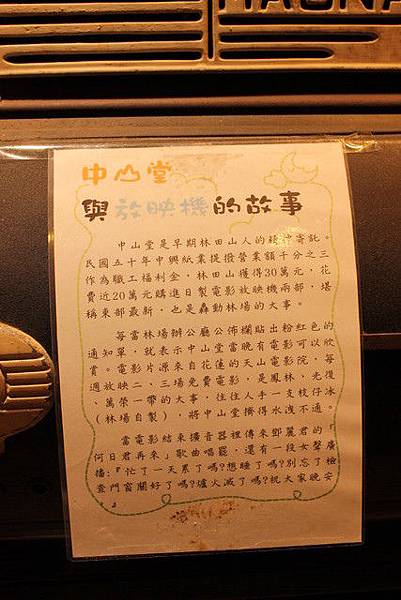 MAGNA
中山堂
與放映機的故事
中山堂是早期林田山人的精神寄託。
民國五十年中興紙業提撥營業額千分之三
作為職工福利金，林田山獲得30萬元，花
費近20萬元購進日製電影放映機兩部，堪
稱東部最新，也是轟動林場的大事。
每當林場辦公廳公佈欄貼出粉紅色的
通知單，就表示中山堂當晚有電影可以欣
賞。電影片源來自花蓮的天山電影院，每
週放映二、三場免費電影，是鳳林、光復
、萬榮一帶的大事，往往人手一支枝仔冰
（林場自製），將中山堂擠得水洩不通。
當電影結束擴音器裡傳來鄧麗君的『
何日君再來』歌曲唱罷，還有一段女聲廣
播:『忙了一天累了嗎?想睡了嗎?別忘了檢
查門窗關好了嗎?爐火滅了嗎?祝大家晚安
。』